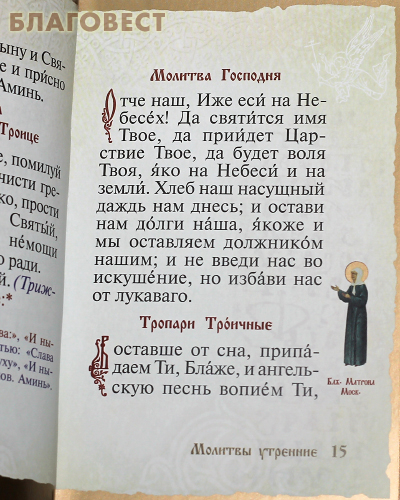 БЛАГОВЕСТ
ыну и Свя-
е и при́сно
Аминь.
Троице
, помилуй
чисти гре-
ко, прости
Святы́й,
не́мощи
о ради.
й. (Триж-
:*
ва:», «И ны-
тью: «Слава
уху», «И ны-
ков. Аминь».
Молитва Господня
Отче наш, Иже еси́ на Не-
бесе́х! Да святи́тся имя
Твое, да прии́дет Цар-
ствие Твое, да будет воля
Твоя, я́ко на Небеси́ и на
земли́. Хлеб наш насущный
даждь нам днесь; и остави
нам до́лги на́ша, я́коже и
мы оставляем должнико́м
нашим; и не введи нас во
искуше́ние, но изба́ви нас
от лукаваго.
Тропари Тро́ичные
Воставше от сна, припа́-
даем Ти, Бла́же, и ангель-
скую песнь вопие́м Ти,
Блж. Матрона
Моск.
Молитвы утренние 15